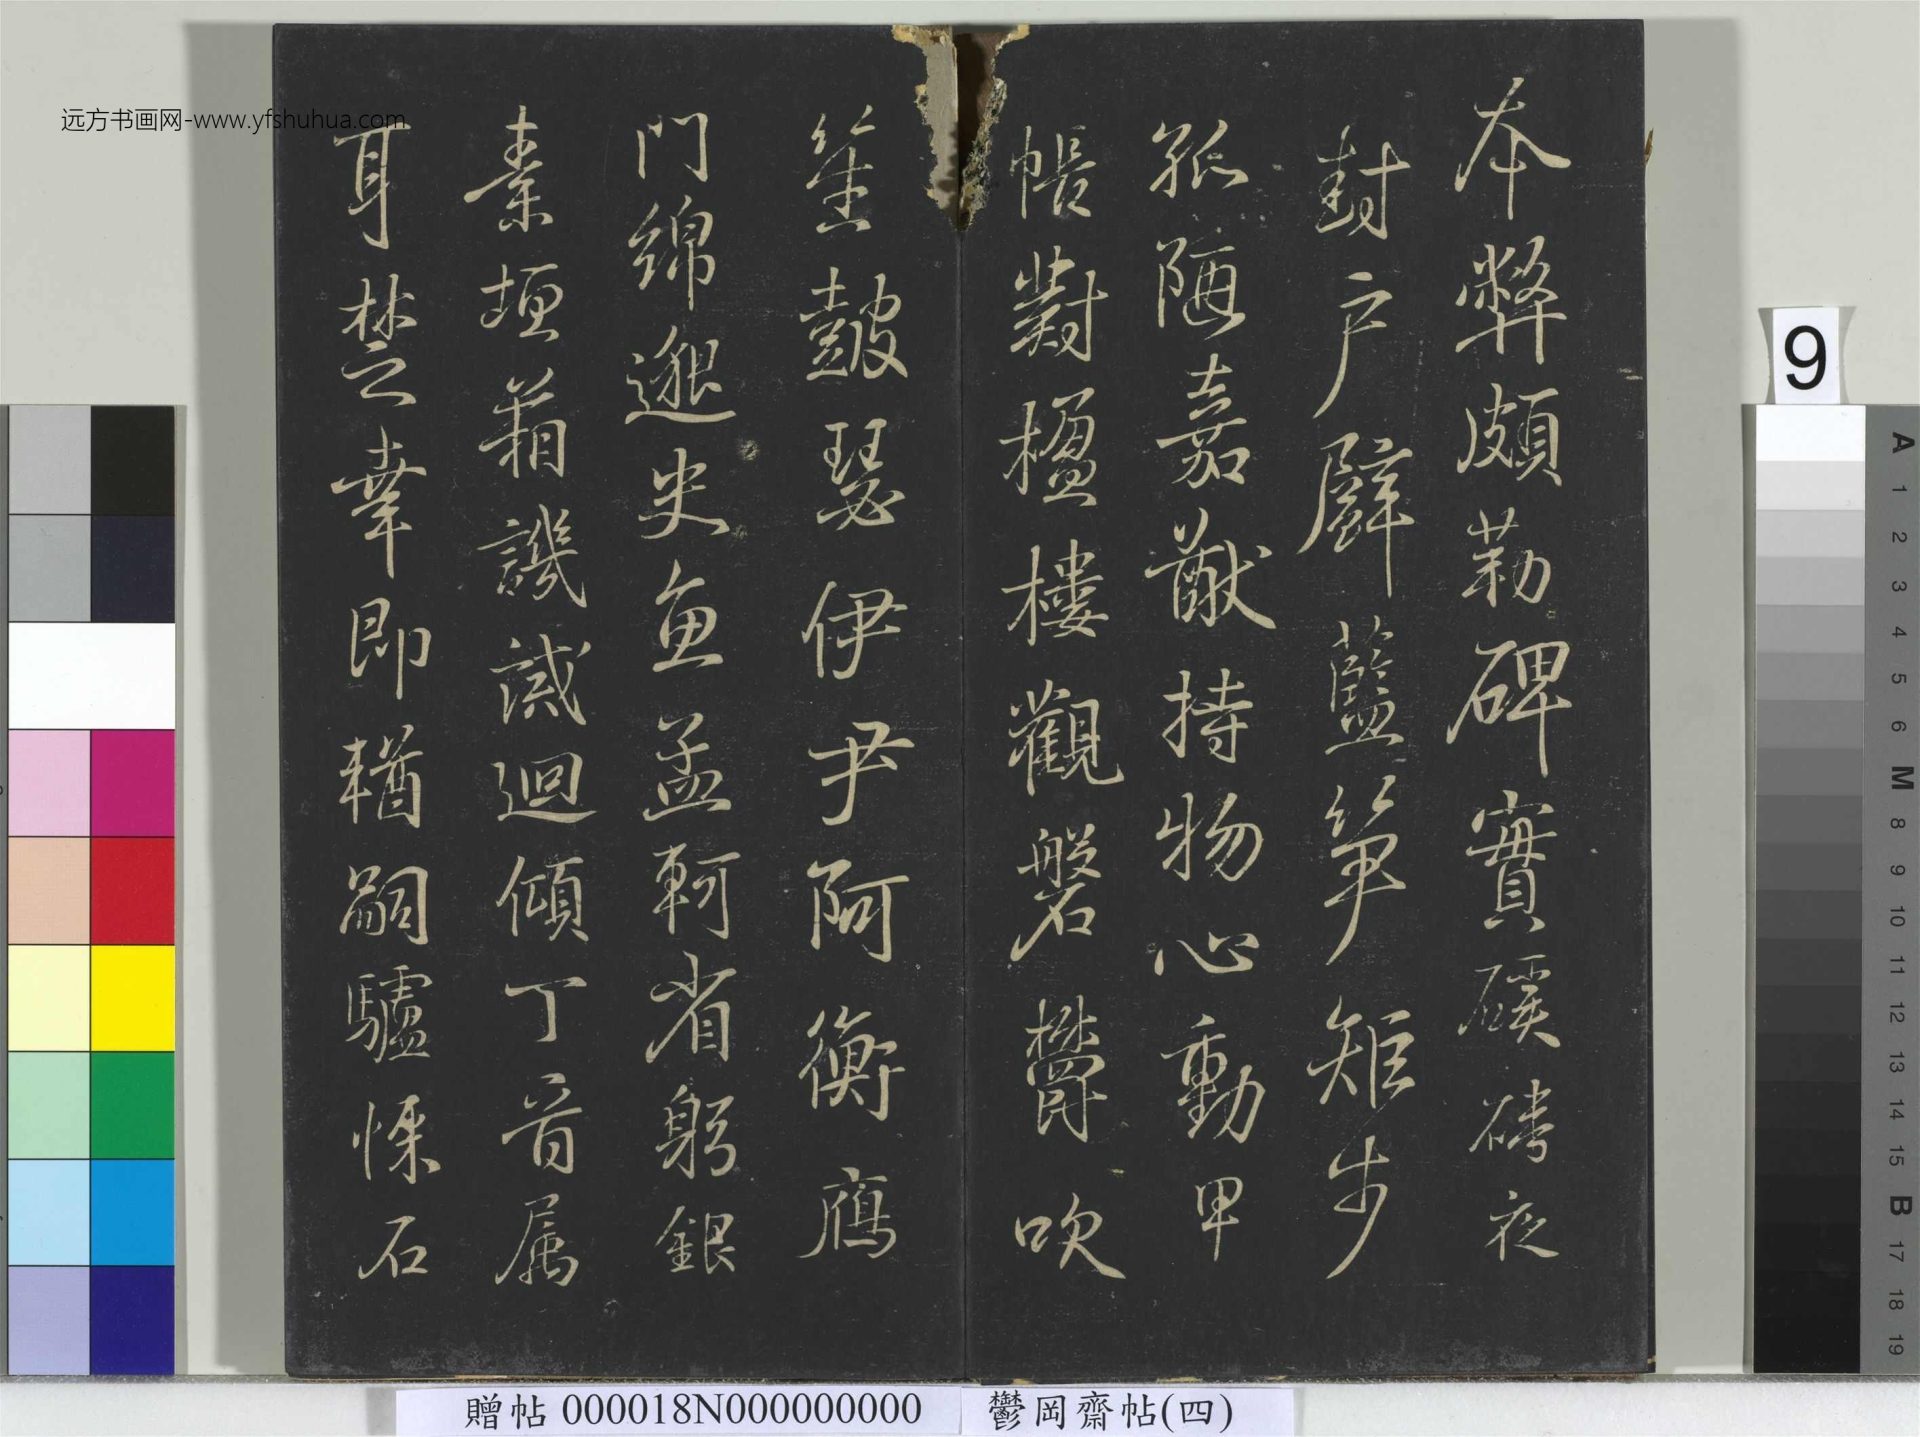 本弊頗勒碑實磎夜
封户璧藍笋矩步
孤陋嘉猷持物心動甲
帳對楹樓觀磐鬱吹
笙鼓瑟伊尹阿衡鴈
門綿邈史魚孟軻省躬銀
素垣箱譏誡迴傾丁晉属
耳楚幸即輶嗣驢悚石
远方书画网-www.yfshuhua.com
9
A
1
2
3
4
5
6
M
8
9
10
11
12
13
14
15
B
17
18
19
贈帖 000018N000000000
鬱岡齋帖(四)